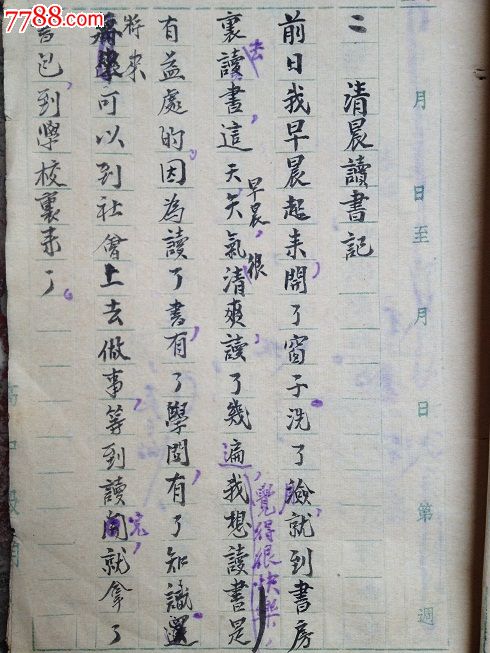 7788.com
月 日至 月 日 第 週
二 清晨讀書記
前日我早晨起来開了窗子洗了臉，就到書房
裏去讀書，這天早晨，天氣很清爽讀了幾遍，覺得很快樂，我想讀書是
有益處的，因為讀了書，有了學問，有了知識。還
將来可以到社會上去做事，等到讀完，就拿了
書包，到學校裏来了。